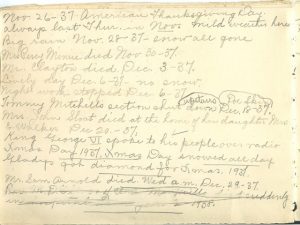 Nov. 26-37. American Thanksgiving Day
always last Thurs. in Nov. Mild weather here
Big rain Nov. 28-37 - snow all gone
Mrs. Percy Minnie died Nov. 30-37.
Mr. Clayton died Dec. 3-37.
Lovely day Dec. 6-37 - no snow
Night work stopped Dec. 6-37
Tommy Mitchell's section
Mrs. John Sloat died at the home of her daughter Mrs.
Dec 20-37.
King George VI spoke to his people over radio
Xmas Day 1937. Xmas Day snowed all day
Gladys got diamond for Xmas. 1937.
Mr. Sam Arnold died Wed a.m. Dec. 29-37.
suddenly
1938.